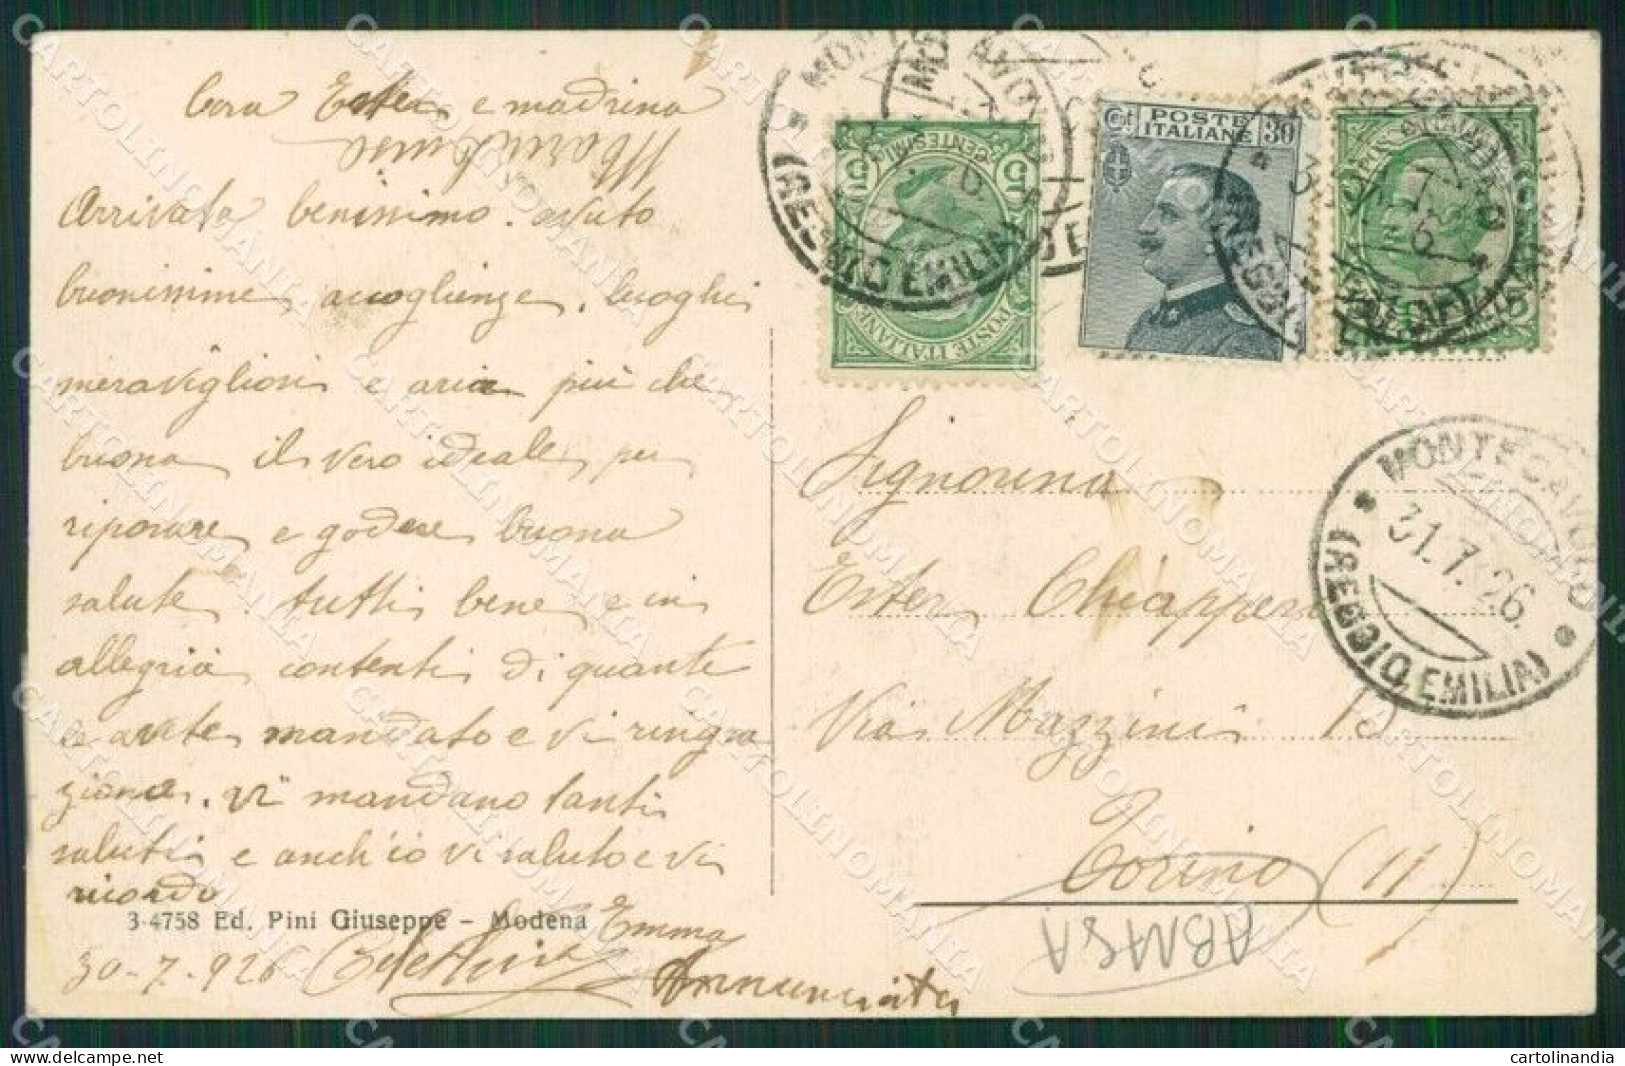 Cara Ester e madrina
Arrivata benissimo. avuto
buonissime accoglienze. luoghi
meravigliosi e aria più che
buona il vero ideale per
riposare e godere buona
salute. tutti bene e in
allegria contenti di quante
le avete mandato e vi ringra
ziano. vi mandano tanti
saluti e anch'io vi saluto e vi
ricordo
3-4758 Ed. Pini Giuseppe - Modena
Emma
30-7-926
Annunciata
CENTESIMI
5 5
POSTE ITALIANE
Ct. POSTE ITALIANE 30
MONTECAVOLO
31.7.26.
(REGGIO EMILIA)
Signorina
Ester Chiappero
Via Mazzini
Torino (11)
CARTOLINOMANIA
cartolinandia